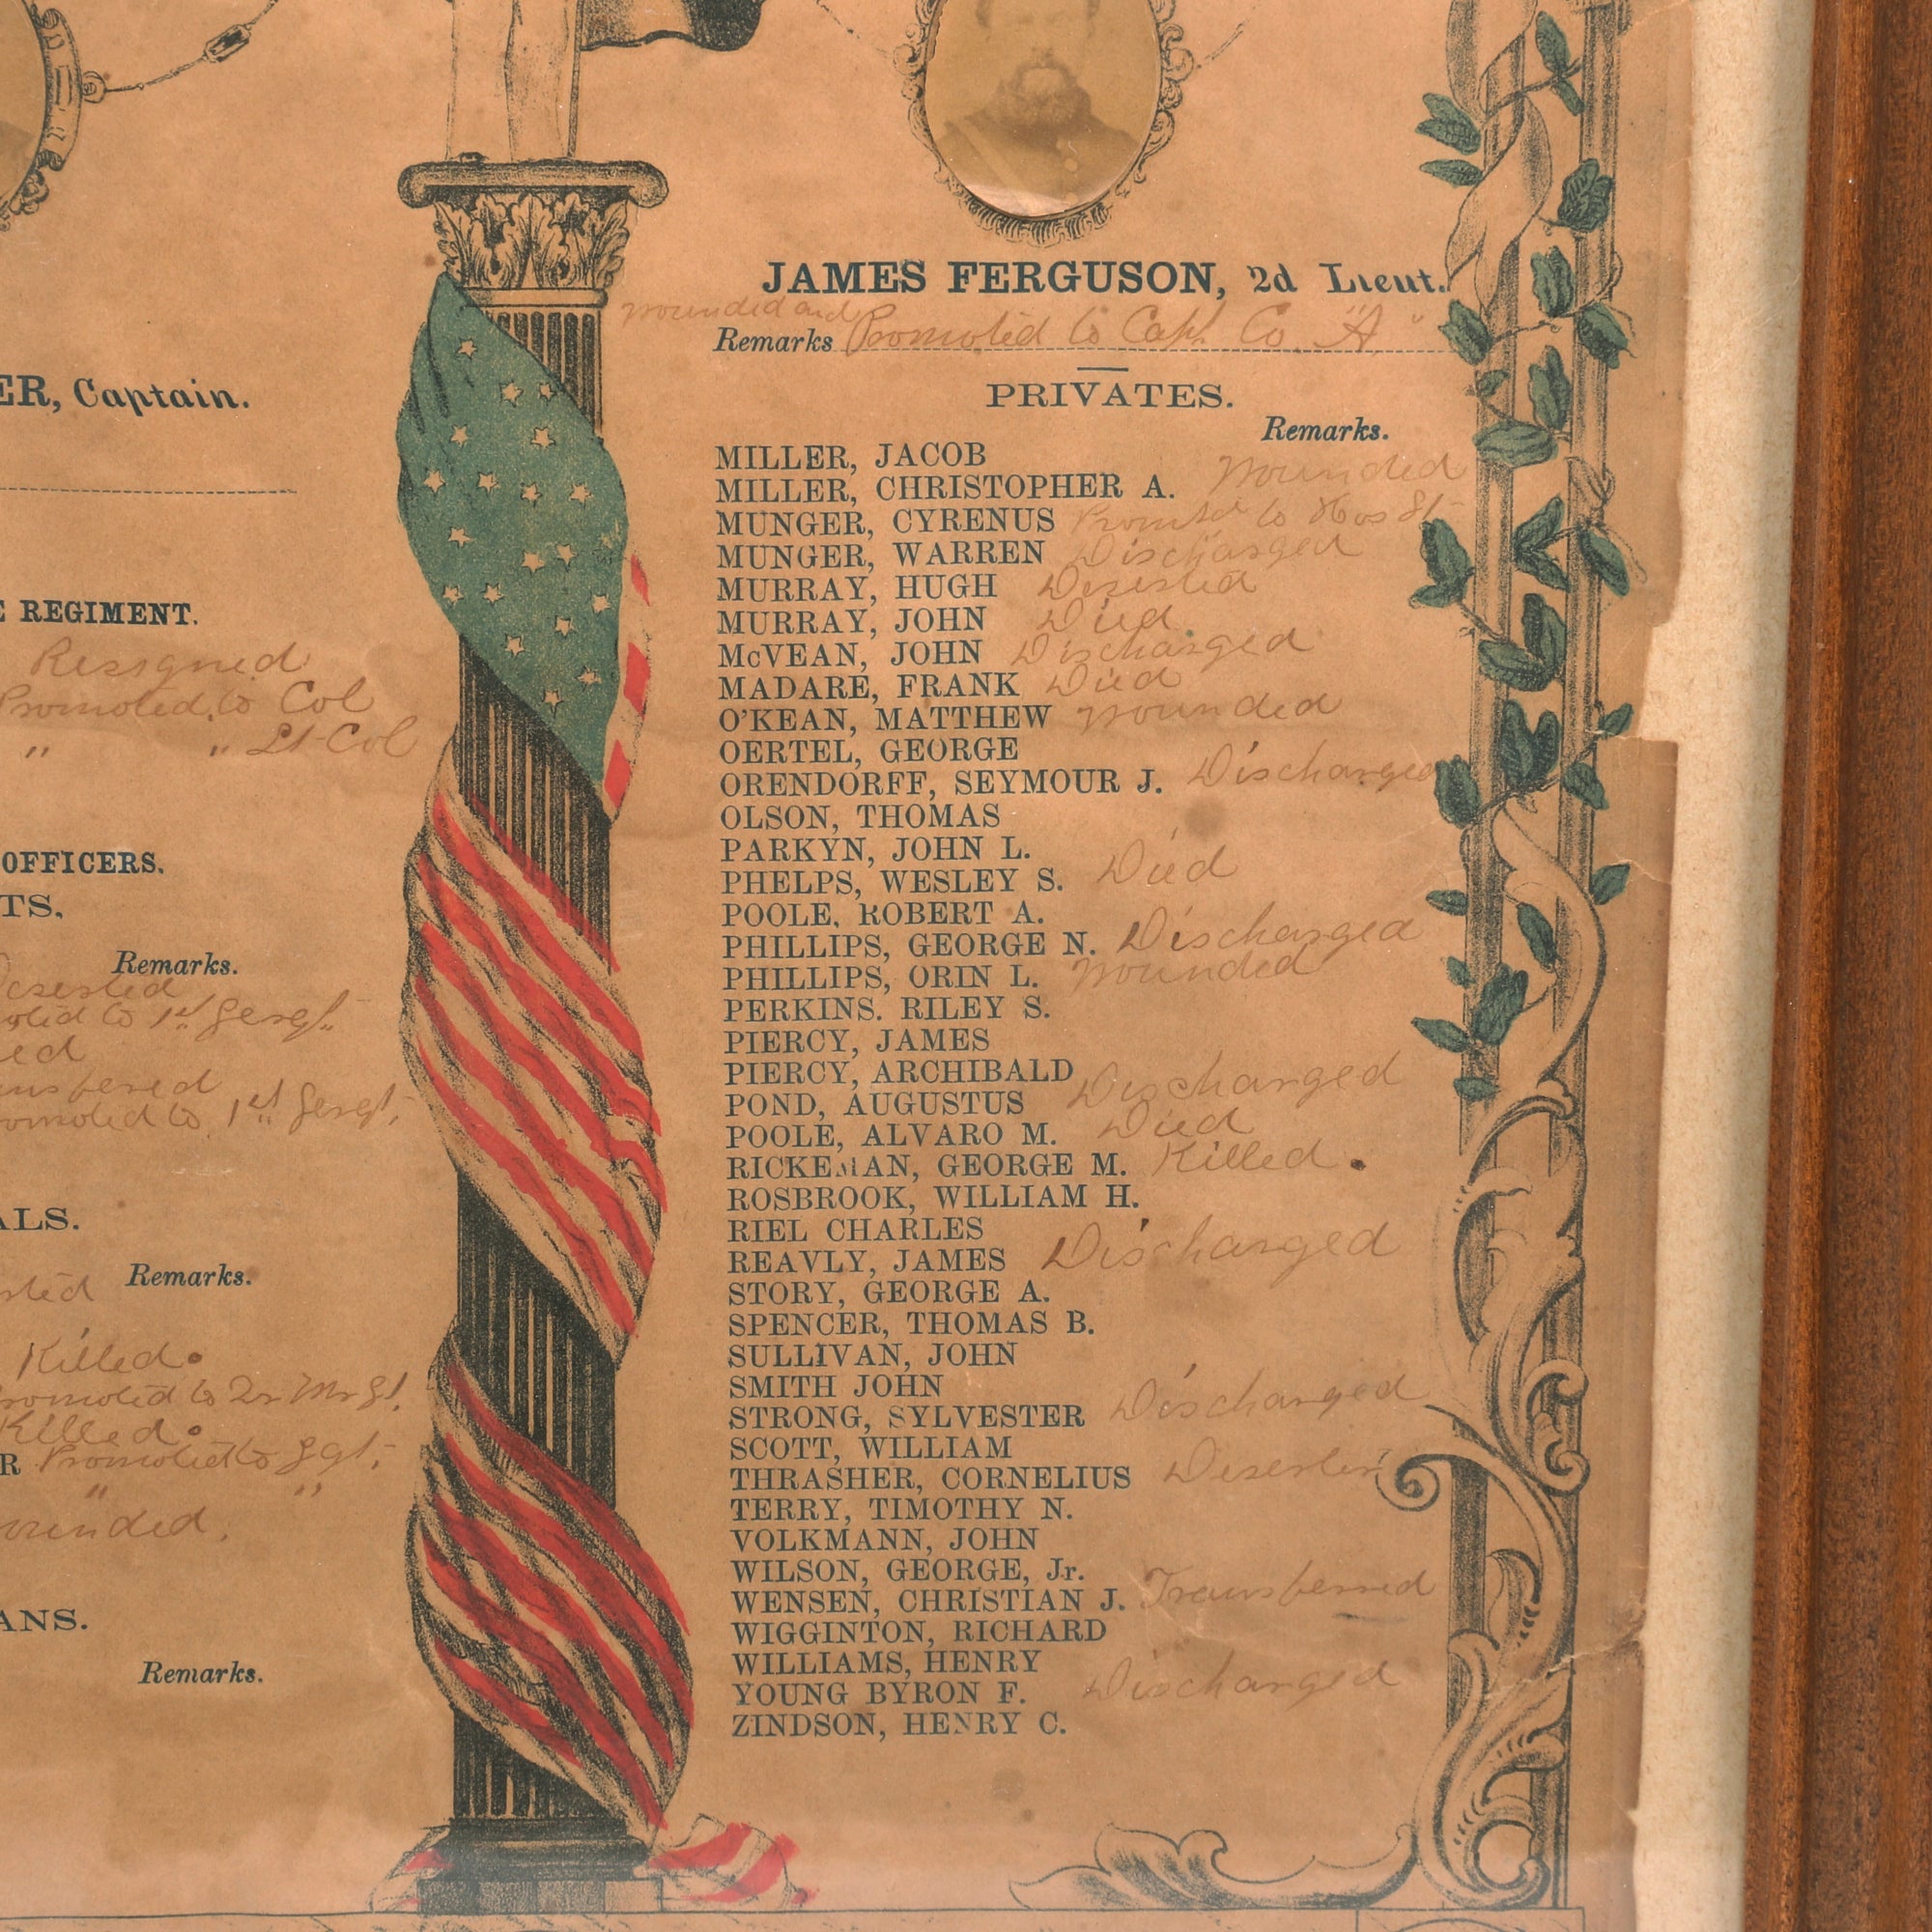 ER, Captain.
E REGIMENT.
Resigned
Promoted to Col
" " Lt-Col
OFFICERS.
TS.
Remarks.
Deserted
to 1st Sergt.
ed
Promoted to 1st Sergt.
ALS.
Remarks.
Killed.
Promoted to Qr Mr Sgt.
Killed.
R Promoted to Sgt.
" "
ounded.
ANS.
Remarks.
JAMES FERGUSON, 2d Lieut.
wounded and
Remarks Promoted to Capt. Co. "A"
PRIVATES.
Remarks.
MILLER, JACOB
MILLER, CHRISTOPHER A. Wounded
MUNGER, CYRENUS Promtd to Hos St-
MUNGER, WARREN Discharged
MURRAY, HUGH Deserted
MURRAY, JOHN Died
McVEAN, JOHN Discharged
MADARE, FRANK Died
O'KEAN, MATTHEW wounded
OERTEL, GEORGE
ORENDORFF, SEYMOUR J. Discharged
OLSON, THOMAS
PARKYN, JOHN L.
PHELPS, WESLEY S. Died
POOLE, ROBERT A.
PHILLIPS, GEORGE N. Discharged
PHILLIPS, ORIN L. wounded
PERKINS. RILEY S.
PIERCY, JAMES
PIERCY, ARCHIBALD
POND, AUGUSTUS Discharged
POOLE, ALVARO M. Died
RICKEMAN, GEORGE M. Killed.
ROSBROOK, WILLIAM H.
RIEL CHARLES
REAVLY, JAMES Discharged
STORY, GEORGE A.
SPENCER, THOMAS B.
SULLIVAN, JOHN
SMITH JOHN
STRONG, SYLVESTER Discharged
SCOTT, WILLIAM
THRASHER, CORNELIUS Deserter
TERRY, TIMOTHY N.
VOLKMANN, JOHN
WILSON, GEORGE, Jr.
WENSEN, CHRISTIAN J. Transferred
WIGGINTON, RICHARD
WILLIAMS, HENRY
YOUNG BYRON F. Discharged
ZINDSON, HENRY C.